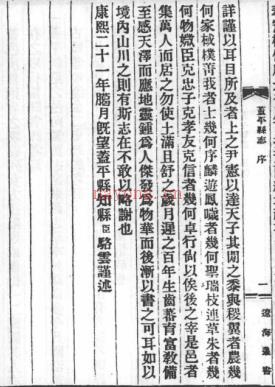 詳謹以耳目所及者上之尹憲以達天子其間之黍與稷翼者農幾
何家棫樸菁莪者士幾何序麟遊鳳噦者幾何聖瑞枝連草朱者幾
何物微臣克忠子克孝友克信者幾何卓行尙以俟後之宰是邑者
集萬人而居之勿使土滿且舒之歲月遲之百年生齒蕃育富敎備
至感天澤而應地靈鍾爲人傑發爲物華而後漸以書之可耳如以
境內山川之則有斯志在不敢以略謝也
康熙二十一年臘月旣望蓋平縣知縣臣駱雲謹述
蓋平縣志 序
一
遼海叢書